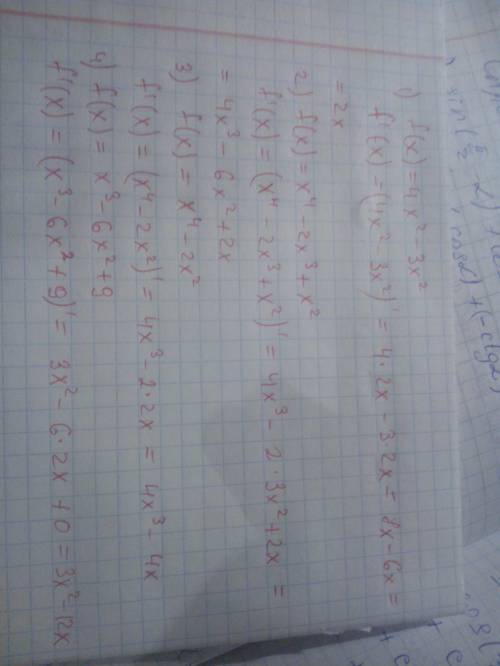 1) f(x) = 4x² - 3x²
f'(x) = (4x² - 3x²)' = 4·2x - 3·2x = 8x - 6x =
= 2x
2) f(x) = x⁴ - 2x³ + x²
f'(x) = (x⁴ - 2x³ + x²)' = 4x³ - 2·3x² + 2x =
= 4x³ - 6x² + 2x
3) f(x) = x⁴ - 2x²
f'(x) = (x⁴ - 2x²)' = 4x³ - 2·2x = 4x³ - 4x
4) f(x) = x³ - 6x² + 9
f'(x) = (x³ - 6x² + 9)' = 3x² - 6·2x + 0 = 3x² - 12x